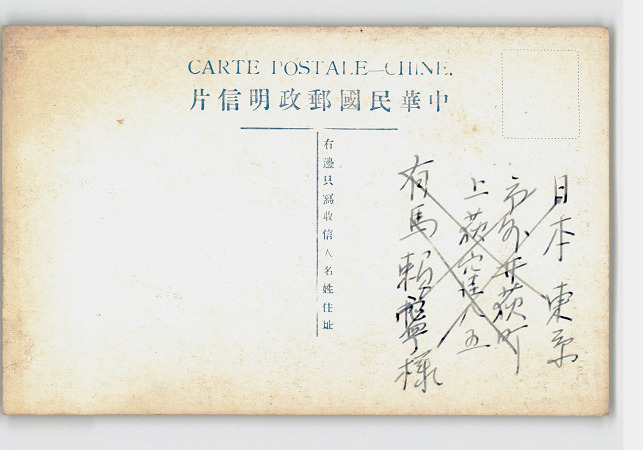 CARTE POSTALE—CHINE.
片信明政郵國民華中
右邊只寫收信人名姓住址
日本東京
市外井荻町
上荻窪八五
有馬賴寧様